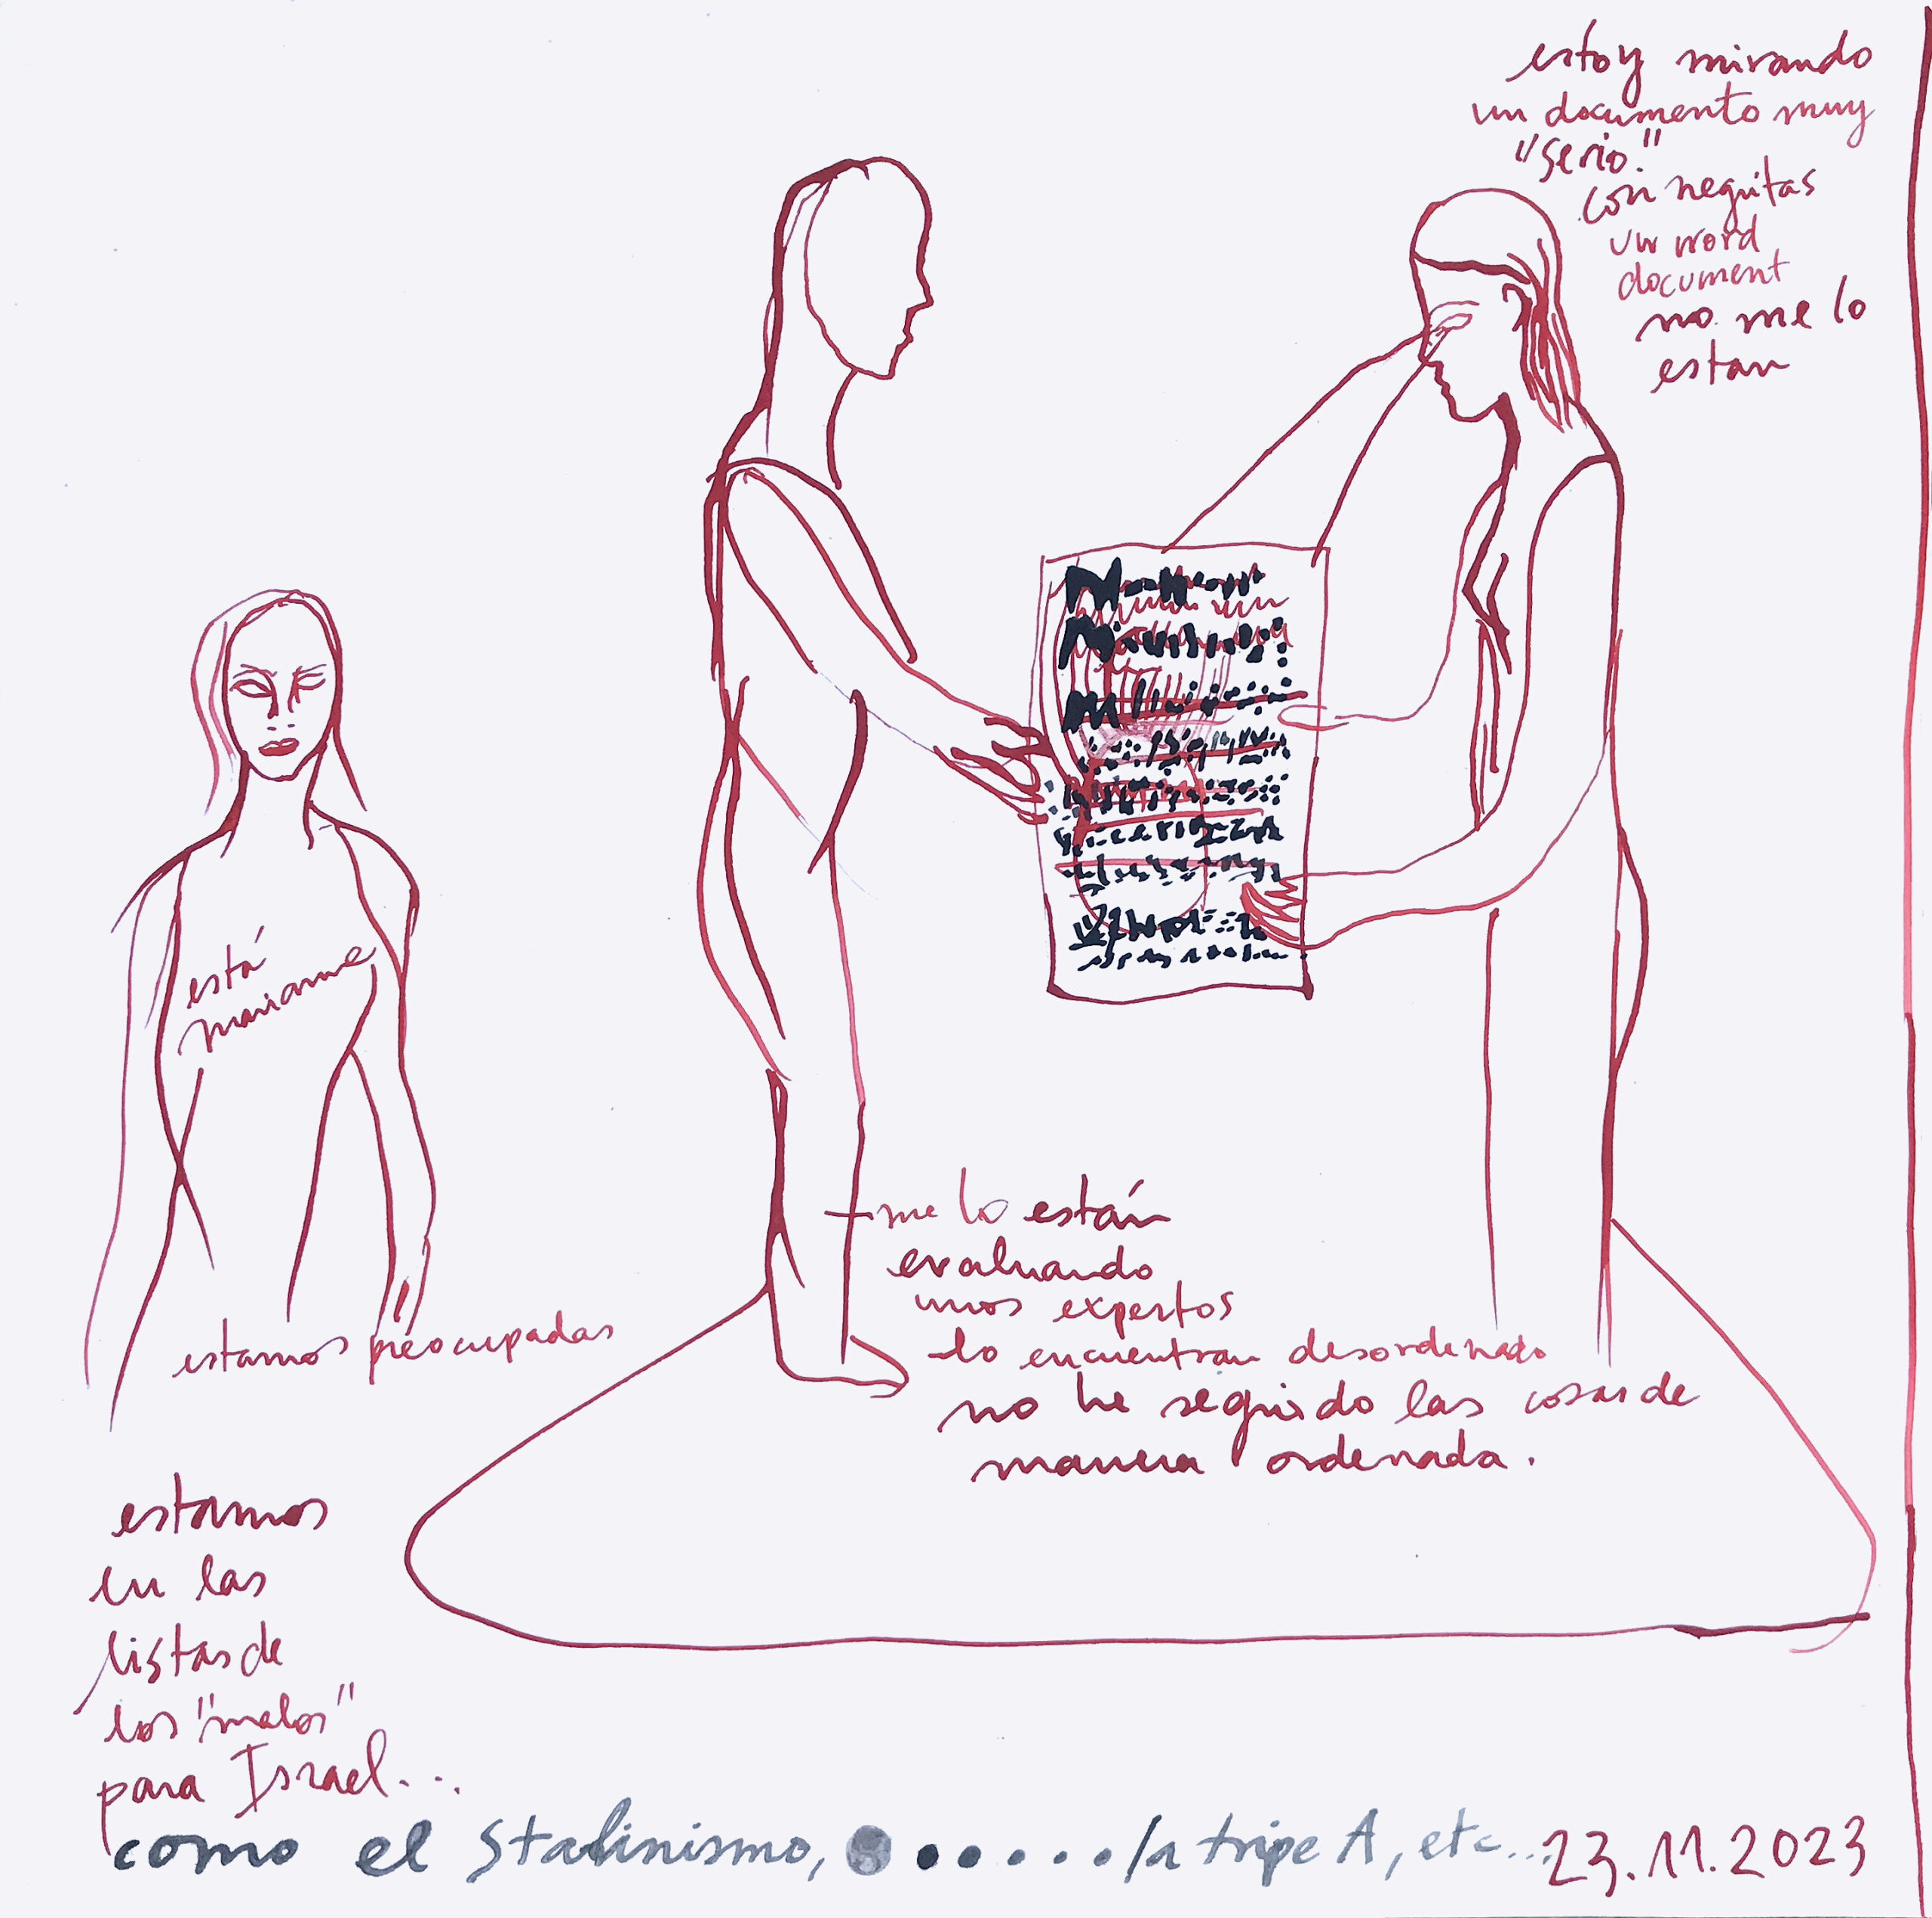 estoy mirando
un documento muy
"serio."
con negritas
un word
document
no me lo
estan
está
marianne
estamos preocupadas
me lo están
evaluando
unos expertos
lo encuentran desordenado
no he seguido las cosas de
manera ordenada.
estamos
en las
listas de
los "malos"
para Israel...
como el Stalinismo, la tripe A, etc...
23.11.2023